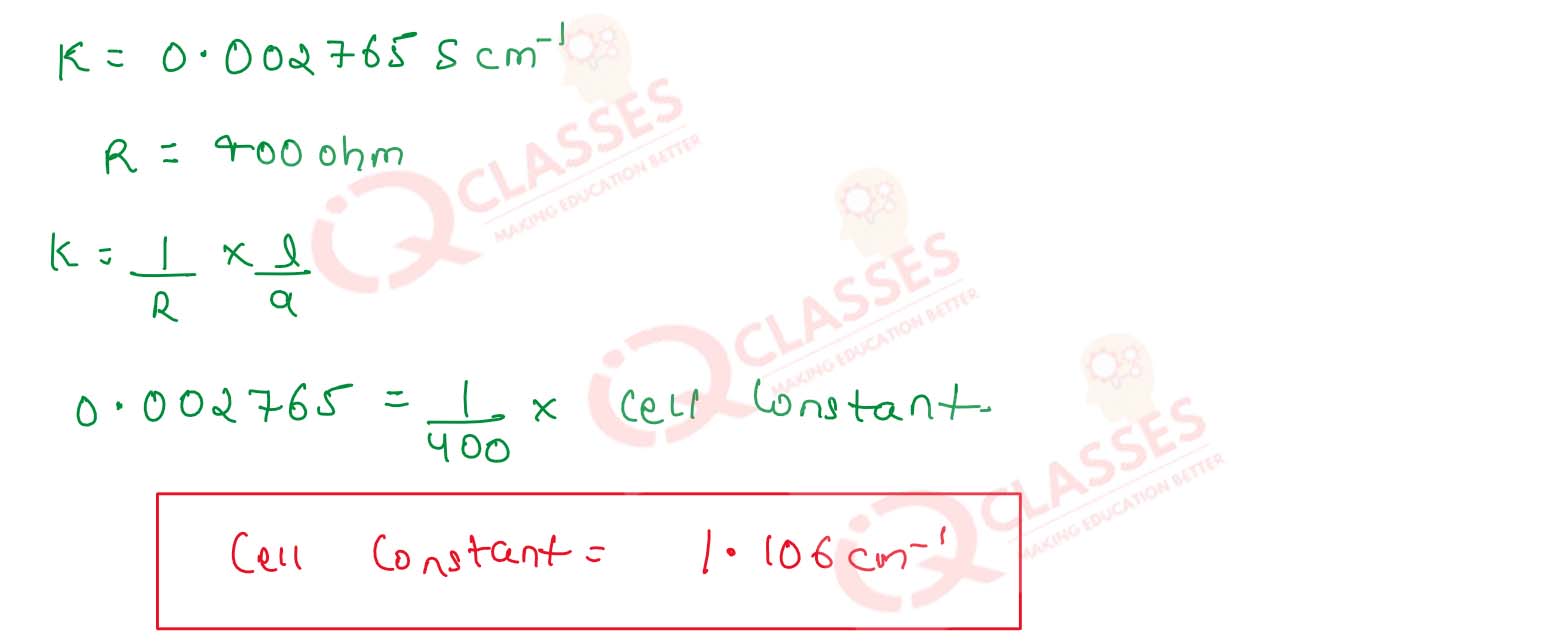 K = 0.002765 S cm⁻¹
R = 400 ohm
K = 1/R × l/a
0.002765 = 1/400 × Cell Constant.
Cell Constant = 1.106 cm⁻¹
iQ CLASSES
MAKING EDUCATION BETTER
iQ CLASSES
MAKING EDUCATION BETTER
iQ CLASSES
MAKING EDUCATION BETTER